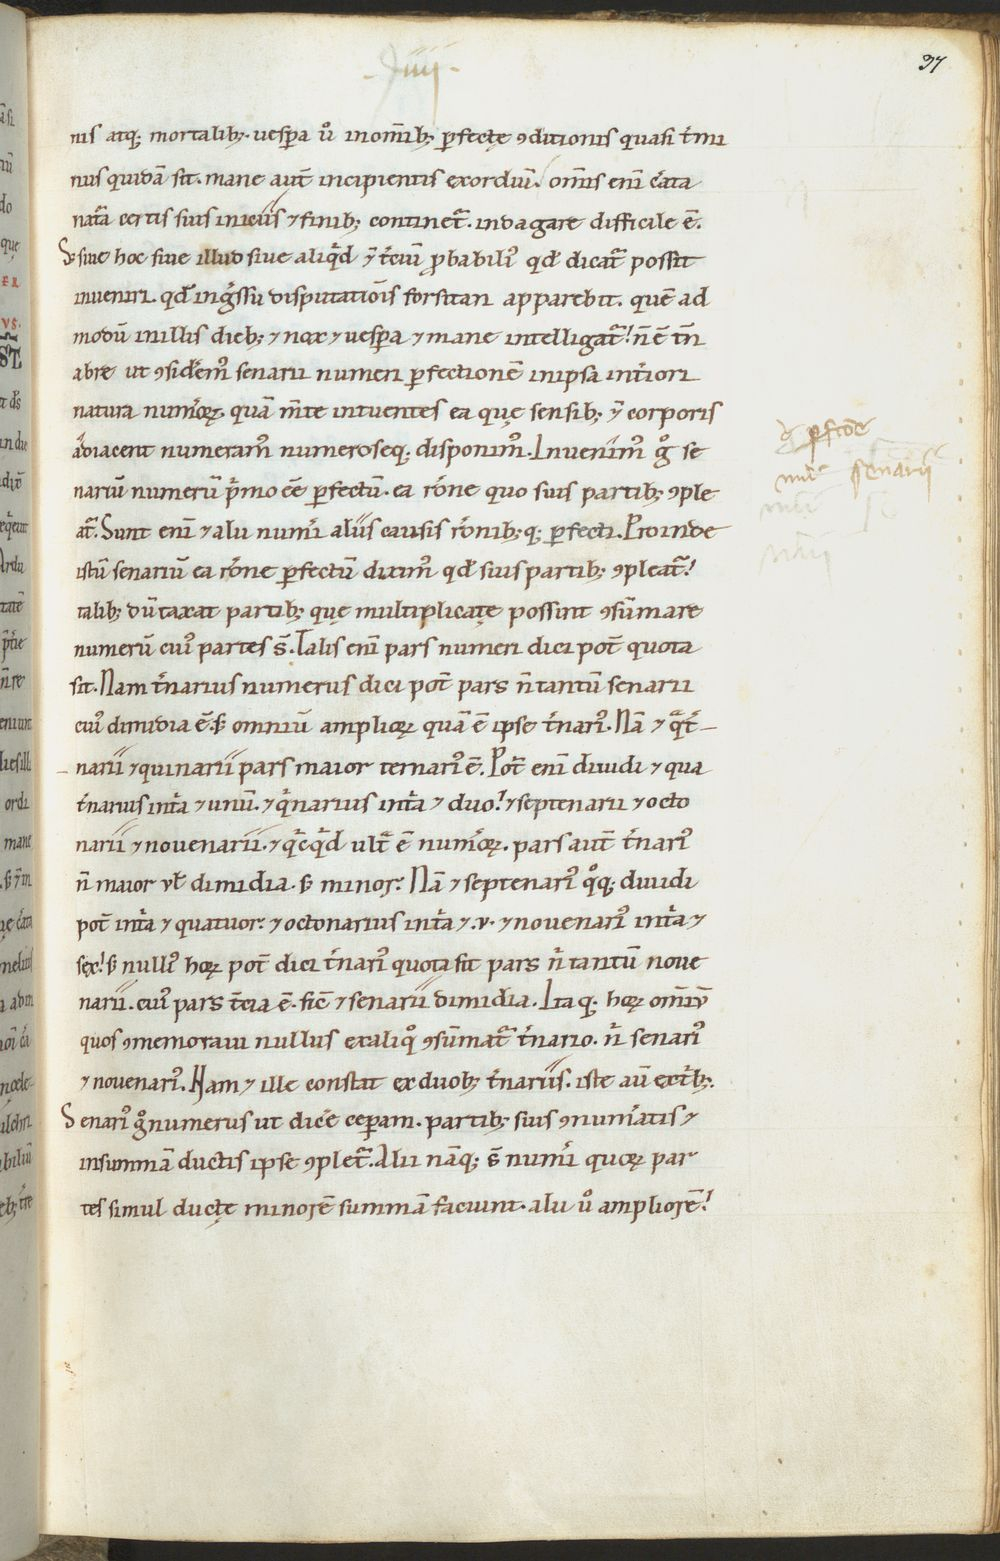 .iiii.
37
nis atq; mortalib;. uespa u̾o inom̄ib; ꝑfectę ꝯditionis quasi t̾mi
nus quidā sit. mane aut̄ incipientis exordiū. om̄is enī c̾ata
nat̾a certis suis inicíís ⁊ finib; continet̾. indagare difficile ē.
S; siue hoc siue illud siue aliq̾d ⁊̄ t̾ciū ꝓbabili᾽ qd̾ dicat̾ possit
inueniri. qd̾ ing̾ssu disputatiōis forsitan apparebit. quē ad
modū inillis dieb; ⁊ nox ⁊ uespa ⁊ mane intelligat̾! n̄ ē tn̄
abre ut ꝯsid̾em᾽ senarii numeri ꝑfectionē inipsa int̾iori
natura num̾oꝝ. quā m̄te intuentes ea quę sensib; ⁊̄ corporis
adiacent numeram᾽ numerosq; disponim᾽. Inuenim᾽ g̊ se
nariū numerū p̾mo eē ꝑfectū. ea rōne quo suis partib; ꝯple
at̾. Sunt enī ⁊ alii num̾i alíís causis rōnib;q; ꝑfecti. Proinde
istū senariū ea rōne ꝑfectū dixim᾽ qd̾ suis partib; ꝯpleat̾!
talib; dūtaxat partib; quę multiplicatę possint ꝯsūmare
numerū cui᾽ partes s̄. Talis enī pars numeri dici pot̄ quota
sit. Nam t̾narius numerus dici pot̄ pars n̄ tantū senarii
cui᾽ dimidia ē. s; omniū ampliorꝝ quā ē ipse t̾nari᾽. Nā ⁊ q̾t̾
naríí ⁊ quinaríí pars maior ternari᾽ ē. Pot̄ enī diuidi ⁊ qua
t̾narius int̾a ⁊ unū. ⁊ q̾narius int̾a ⁊ duo! ⁊ septenarii ⁊ octo
naríí ⁊ nouenaríí. ⁊ q̾cq̾d ult̾ ē num̾oꝝ. pars aut̄ t̾nari᾽
n̄ maior ul̄ dimidia. s; minor. Nā ⁊ septenari᾽ q̊q; diuidi
pot̄ int̾a ⁊ quatuor. ⁊ octonarius int̾a ⁊ .v. ⁊ nouenari᾽ int̾a ⁊
sex! s; null᾽ hoꝝ pot̄ dici t̾nari᾽ quota sit pars n̄ tantū noue
naríí. cui᾽ pars t̄cia ē. sic̄ ⁊ senaríí dimidia. Itaq; hoꝝ om̄iū
quos ꝯmemoraui nullus exaliq̊ ꝯsūmat̾ t̾nario. n̄ senari᾽
⁊ nouenari᾽. Nam ⁊ ille constat ex duob; t̾naríís. iste aū ext̾b;.
Senari᾽ g̊ numerus ut dic̾e ceperam. partib; suis ꝯnum̾atis ⁊
insummā ductis ipse ꝯplet̾. Alii nāq; s̄ num̾i quoꝝ par
tes simul ductę minorē summā faciunt. alii u̾o ampliorē!
ꝑfcōe
senaríí